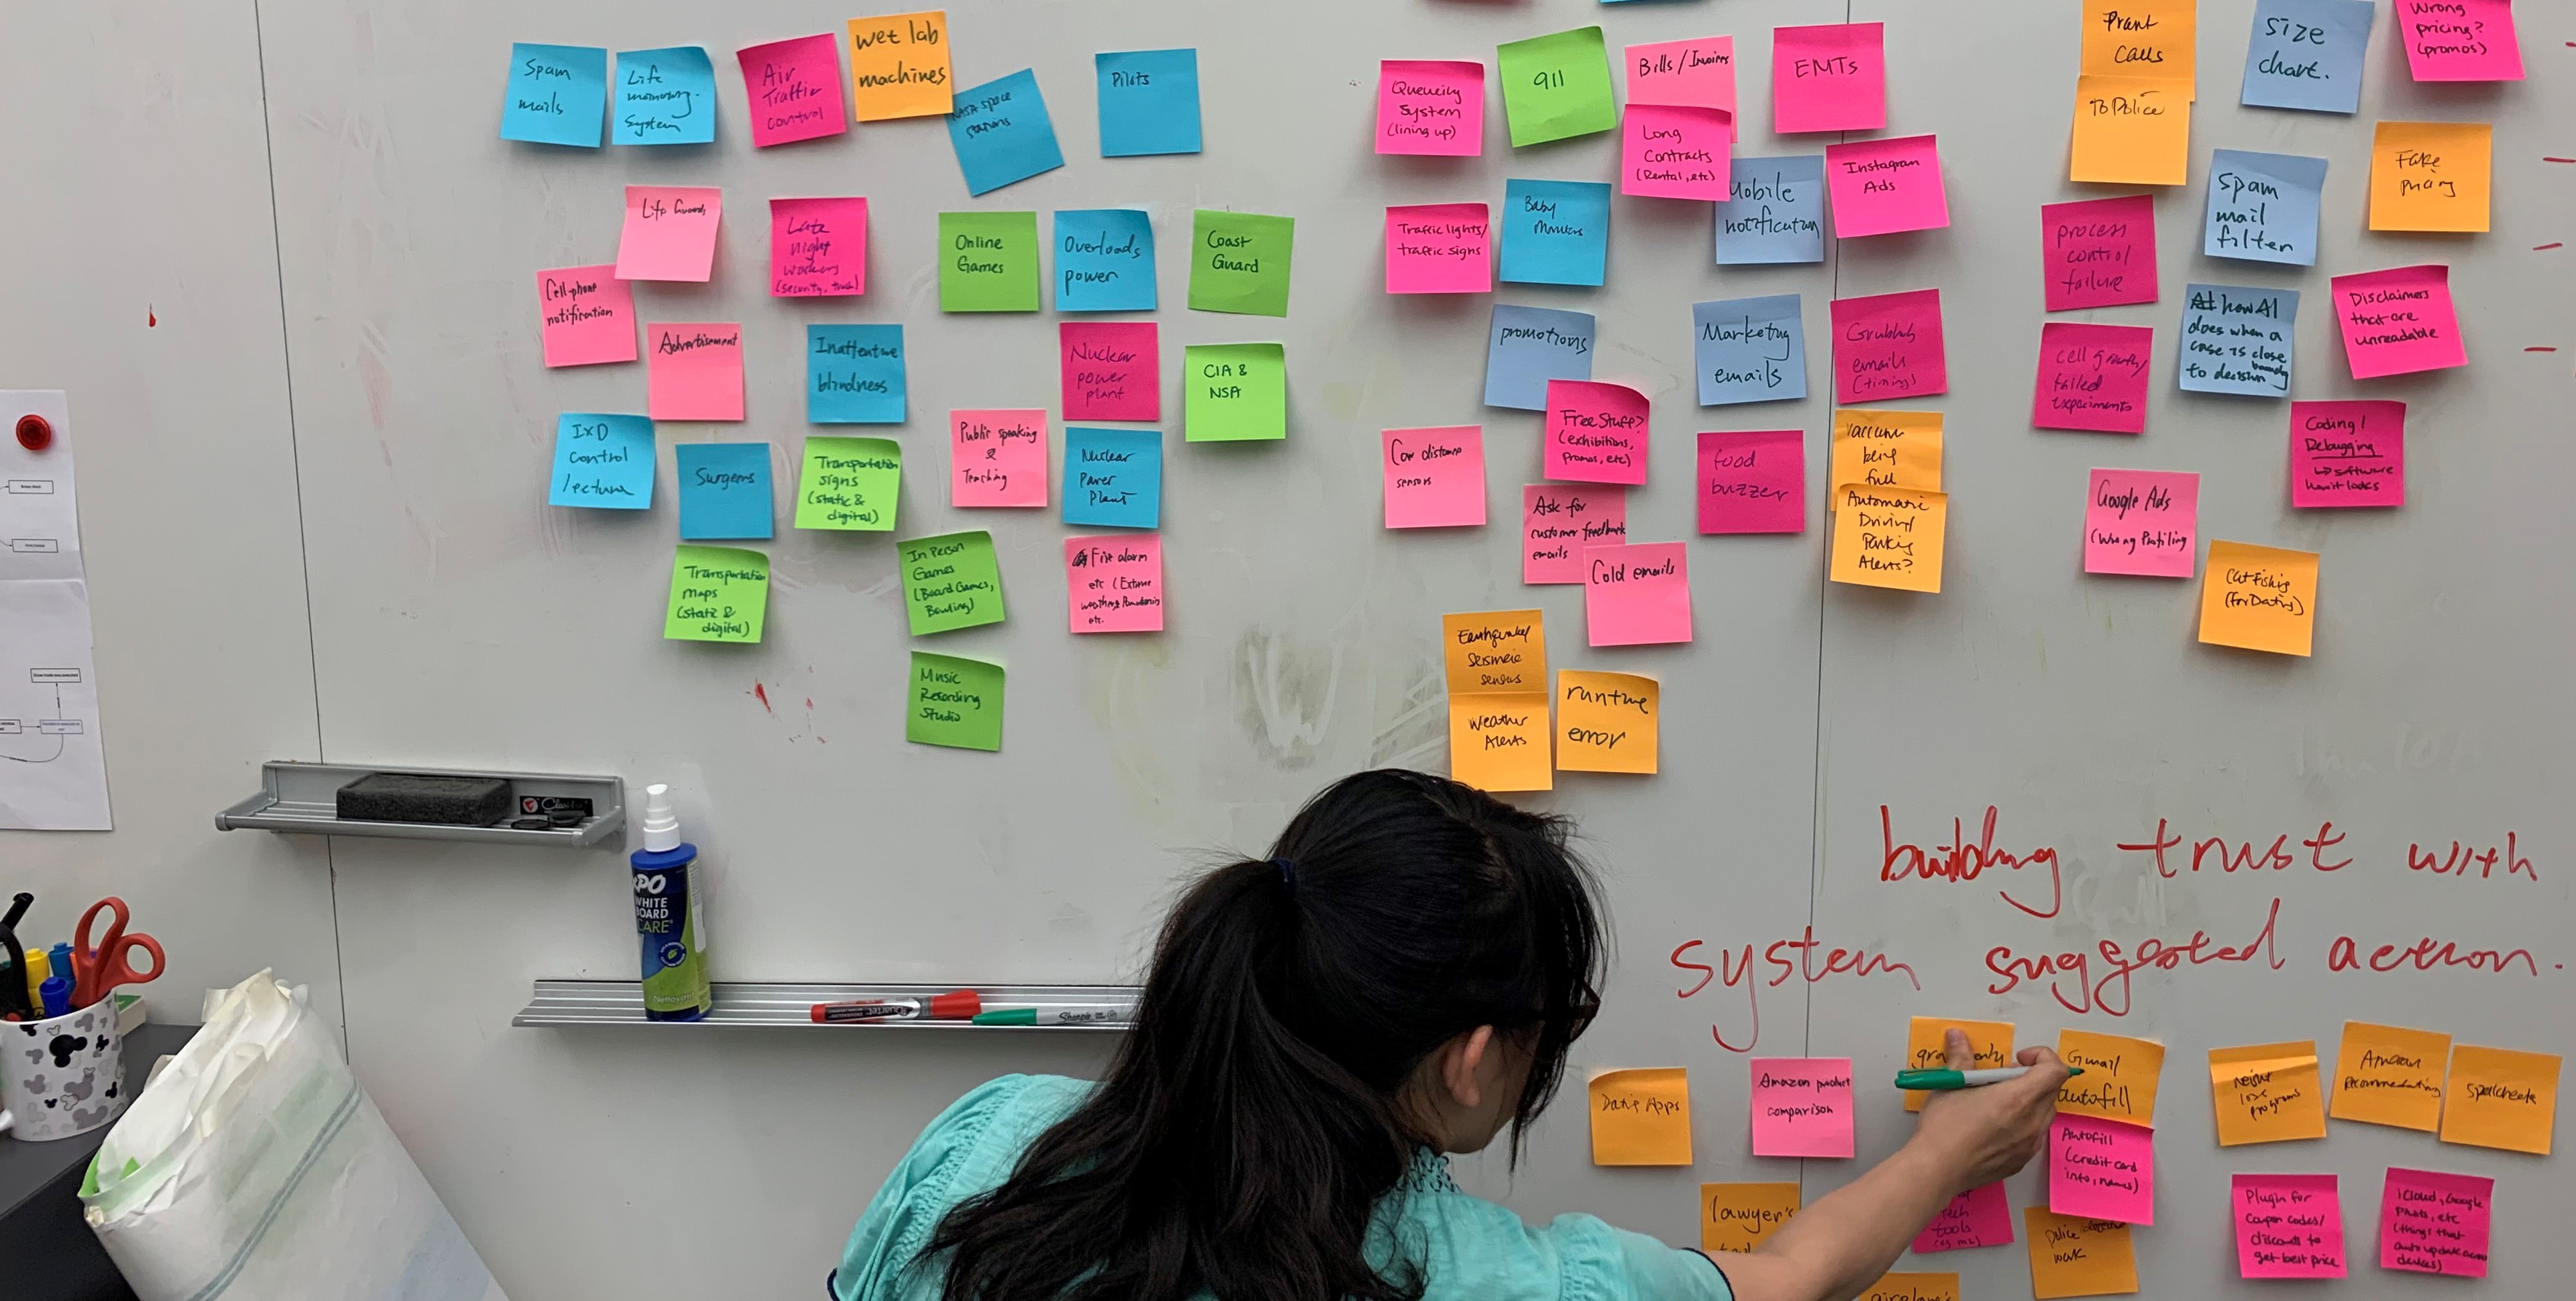 Spam
mails
Life
System
Air
Traffic
control
wet lab
machines
NASA space
stations
Pilots
Life Guards
Late
night
workers
(security, truck)
Online
Games
Overloads
power
Coast
Guard
Cell-phone
notification
Advertisement
Inattentive
blindness
Nuclear
power
plant
CIA &
NSA
IxD
control
lecture
Surgeons
Transportation
signs
(static &
digital)
Public speaking
&
Teaching
Nuclear
Power
Plant
Transportation
maps
(static &
digital)
In Person
Games
(Board Games,
Bowling)
Fire alarm
etc (Extreme
etc.
Music
Recording
Studio
Queueing
System
(lining up)
911
Bills/Invoices
EMTs
Long
Contracts
(Rental, etc)
Mobile
notification
Instagram
Ads
Traffic lights/
traffic signs
Baby
Monitors
promotions
Marketing
emails
Grubhub
emails
(timing)
Free Stuff?
(exhibitions,
promos, etc)
Car distance
sensors
food
buzzer
vaccum
being
full
Ask for
customer feedback
emails
Automatic
Driving/
Parking
Alerts?
Cold emails
Earthquake/
Seismic
sensors
Weather
Alerts
runtime
error
Prank
Calls
to Police
size
chart.
Wrong
pricing?
(promos)
Spam
mail
filter
Fake
pricing
process
control
failure
how AI
does when a
case is close
to decision boundary
Disclaimers
that are
unreadable
cell growth/
failed
experiments
Coding/
Debugging
↳ software
how it looks
Google Ads
(Wrong Profiling)
Catfishing
(for Dating)
building trust with
system suggested action.
Dating Apps
Amazon product
comparison
Gmail
autofill
weight
loss
programs
Amazon
Recommendations
Spellcheck
Autofill
(credit card
info, names)
lawyer's
tech
tools
police
work
Plugin for
coupon codes/
discounts to
get best price
iCloud, Google
Photos, etc
(things that
auto update across
devices)
airplane's
EXPO
WHITE
BOARD
CARE
Nettoyant
Quartet
Sharpie